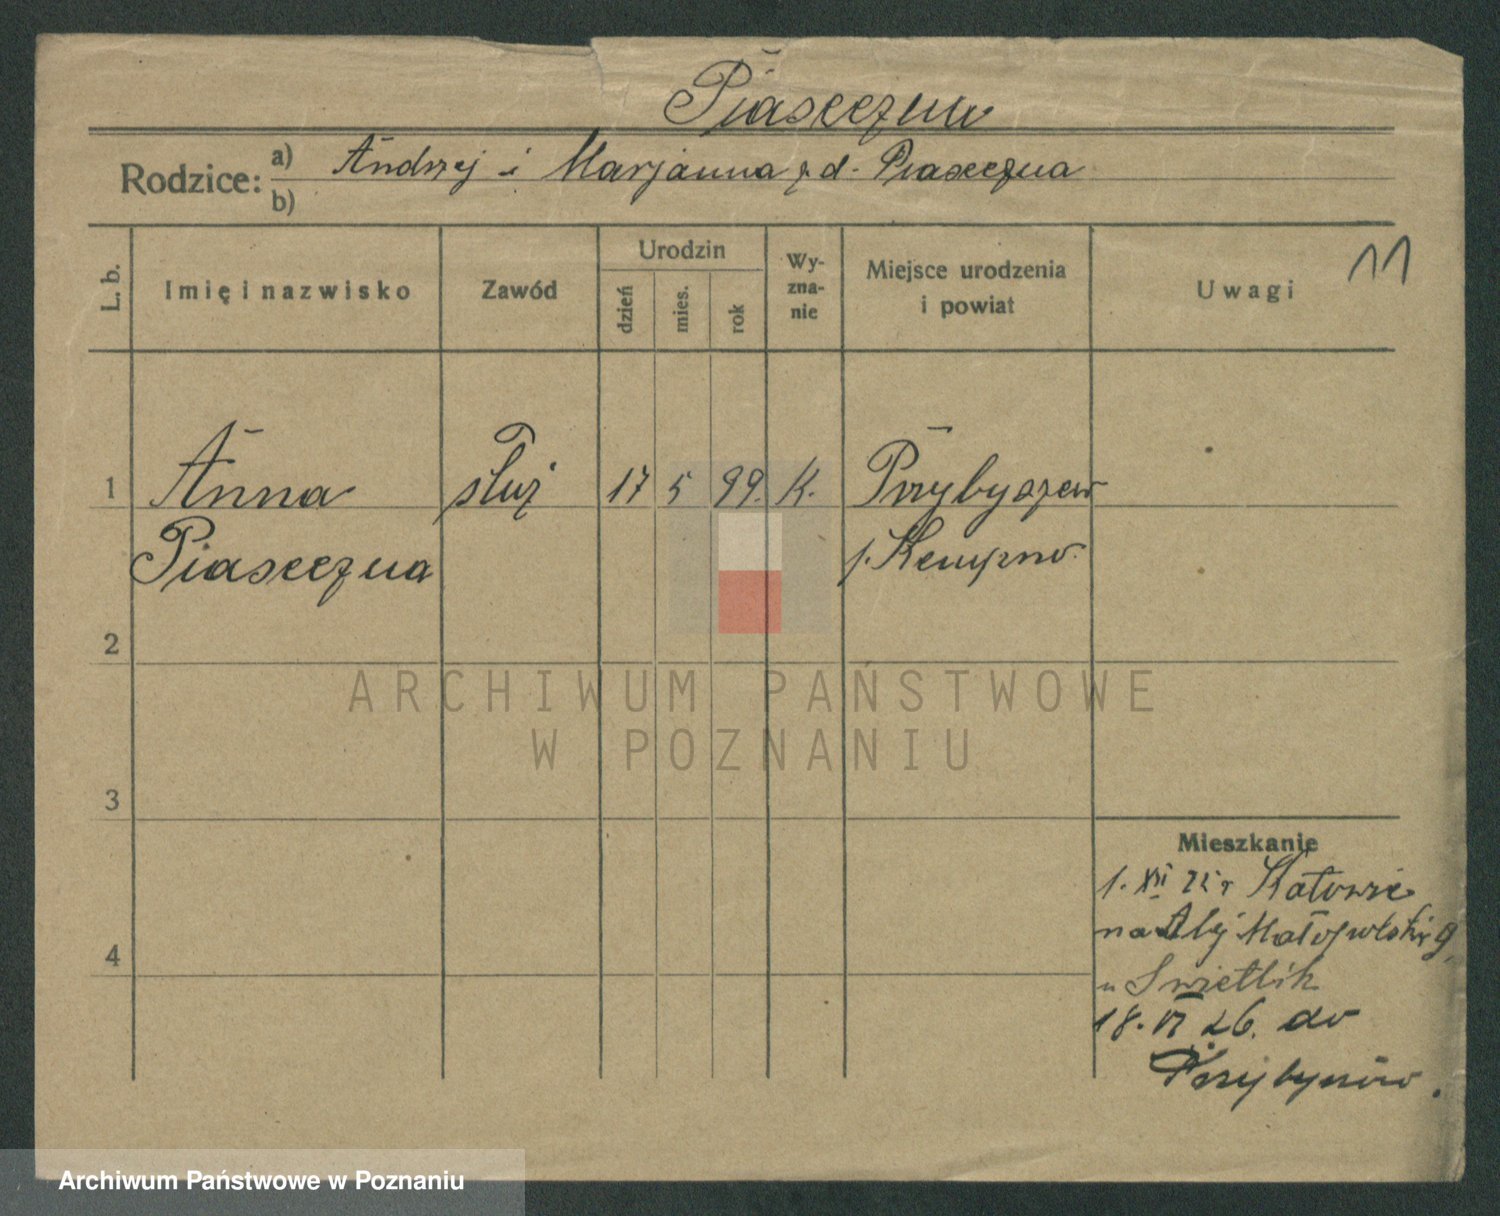 Piaseczna
Rodzice: a) Andrzej i Marjanna z d. Piaseczna
b)
L. b.
Imię i nazwisko
Zawód
Urodzin
dzień
mies.
rok
Wy-
zna-
nie
Miejsce urodzenia
i powiat
Uwagi
11
1 Anna służ 17 5 99. K. Przybyszew
Piaseczna p. Kempno.
2
3
4
Mieszkanie
1. XII 25 r
na Alej 9
u Swietlik
18. VI 26. do
ARCHIWUM PAŃSTWOWE
W POZNANIU
Archiwum Państwowe w Poznaniu